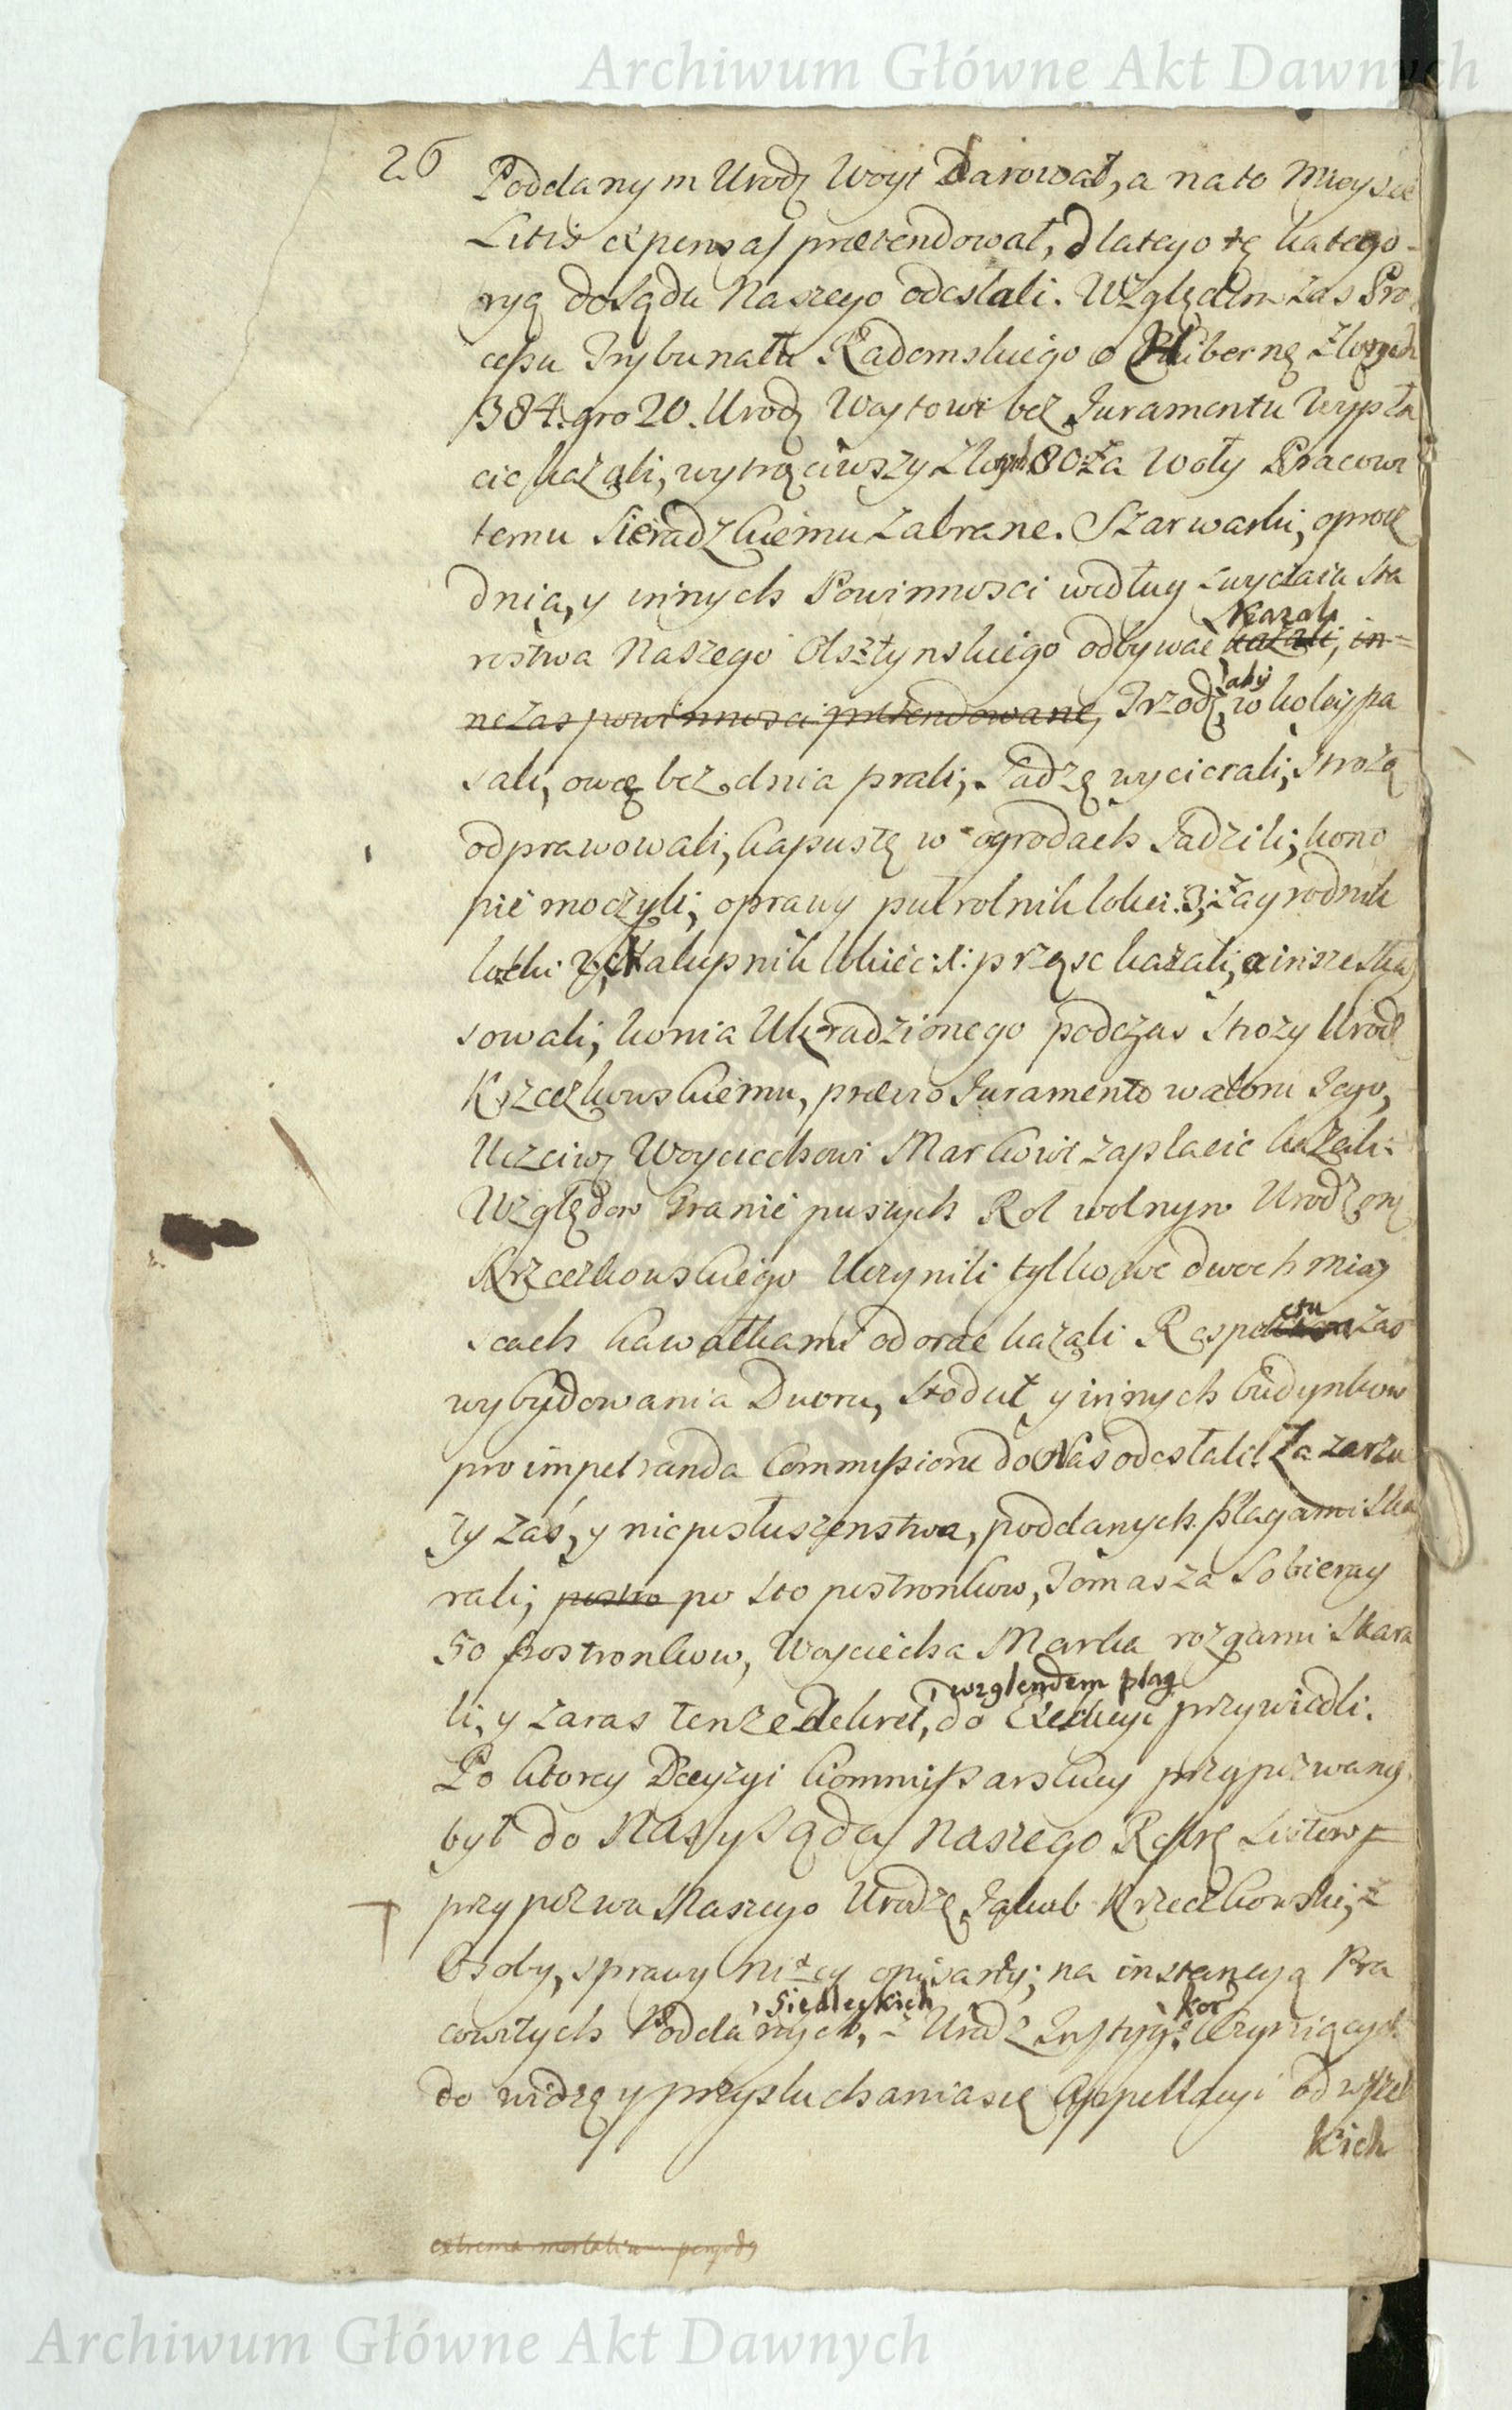 Archiwum Główne Akt Dawnych
26
Poddanym Urodz Woyt Darował, a na to Mieysce
Litis expensas prætendował, dlatego tę katego-
ryą do Sądu Naszego odesłali. Względem zas Pro
cessu Trybunału Radomskiego o Hibernę Złotych
384. gro 20. Urodz Woytowi bez Juramentu Wypła
cic kazali, wytrąciwszy Złotych 80 za Woły Pracowi
temu Sieradzkiemu zabrane. Szarwarki, oprocz
dnia, y innych Powinnosci według zwyczaiu Sta
Kazali
rostwa Naszego Olsztynskiego odbywac kazali, in=
aby
ne zas powinnosci pretendowane, Trzodę, w koley pa
sali, owce bez dnia prali, Sadzę wycierali, Strożą
odprawowali, kapustę w ogrodach Sadzili, kono
pie moczyli, oprawy pułrolnik łokci. 3, zagrodnik
łokci 2, Chałupnik łokiec: 1: prząsc kazali, a insze ska
sowali, konia Ukradzionego podczas Strozy Urodz
Krzeczkowskiemu, prævio Juramento waloru Jego,
Uczciw Woyciechowi Markowi zapłacic kazali:
Względem Granic pustych Rol wolnym Urodzon
Krzeczkowskiego Uczynili tylko we dwoch miey
scach kawałkami odorac kazali Respectu zas
wybudowania Dworu, Stoduł y innych budynkow
pro impetranda Commissione do Nas odesłali. Za zarzu
ty zaś, y nieposłuszenstwa, poddanych plagami ska
rali, postro po Sto postronkow, Tomasza Sobieray
50 postronkow, Woyciecha Marka rozgami skara
względem plag
li, y zaras tenze dekret, do Exekucyi przywiedli.
Po ktorey Decyzyi Kommissarskiey przypozwany
był do Nas y Sądu Naszego Refrę Listow
przypozwu Naszego Urodz Jakub Krzeczkowski, z
Osoby, sprawy nizey opisany, na instancyą Pra
Siedleckich kor
cowitych Poddanych, z Urodz Instyg. Czyniących
do widzę y przysłuchania się Appellacyi od wszel
kich
extrema mortalium
Archiwum Główne Akt Dawnych